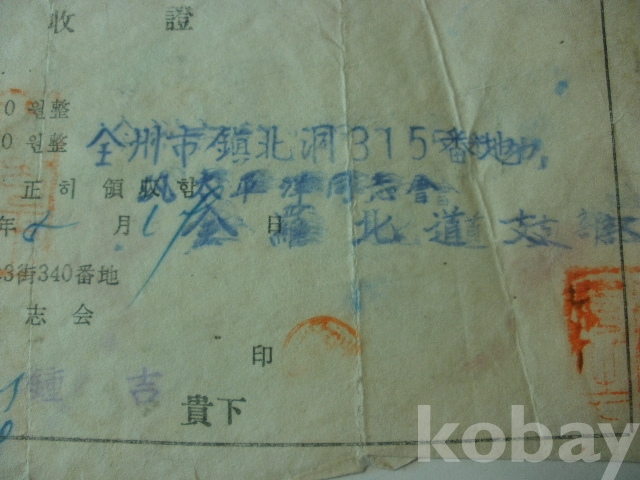 收 證
0 원整
0 원整
全州市鎭北洞315番地
正히 領收함
太平洋同志會
年 月 日
全羅北道支部
3街340番地
志会
印
鍾吉
貴下
kobay